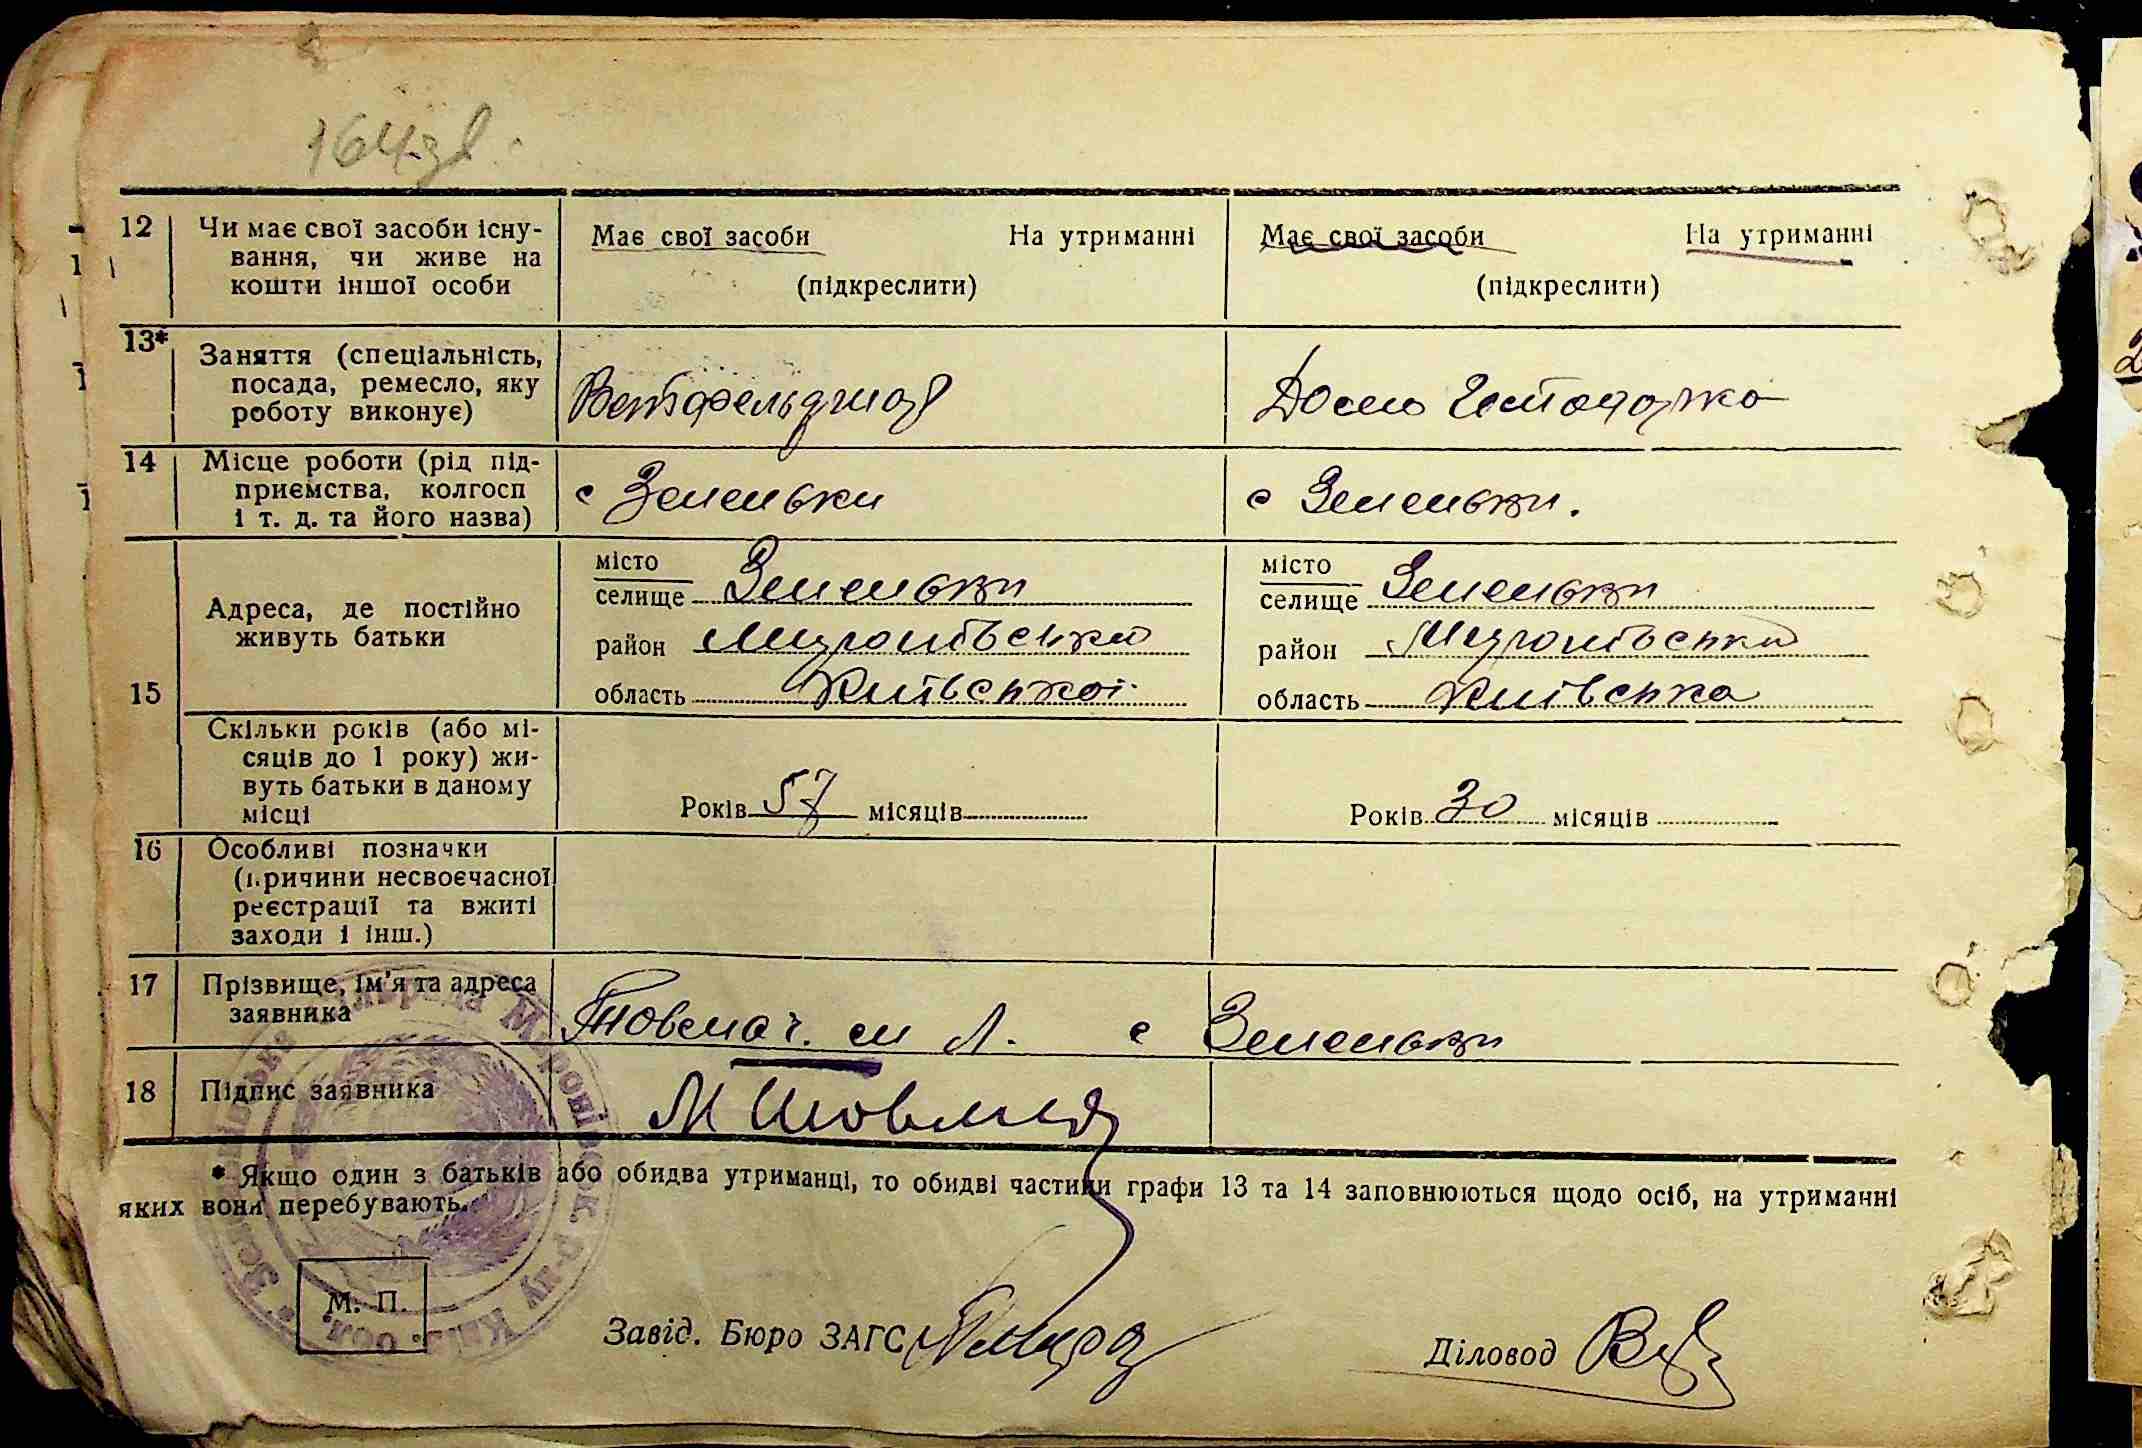 164зв.
12 Чи має свої засоби існу-
вання, чи живе на
кошти іншої особи
Має свої засоби На утриманні
(підкреслити)
Має свої засоби На утриманні
(підкреслити)
13* Заняття (спеціальність,
посада, ремесло, яку
роботу виконує)
Ветфельдшар
Домо Господарка
14 Місце роботи (рід під-
приємства, колгосп
і т. д. та його назва)
с Зеленьки
с Зеленьки.
15
Адреса, де постійно
живуть батьки
місто
селище Зеленьки
район Миронівськи
область Київської
місто
селище Зеленьки
район Миронівськи
область Київська
Скільки років (або мі-
сяців до 1 року) жи-
вуть батьки в даному
місці
Років 57 місяців
Років 30 місяців
16 Особливі позначки
(причини несвоєчасної
реєстрації та вжиті
заходи і інш.)
17 Прізвище, ім'я та адреса
заявника
Товмач. м Л. с Зеленьки
18 Підпис заявника
М Товмач
* Якщо один з батьків або обидва утриманці, то обидві частини графи 13 та 14 заповнюються щодо осіб, на утриманні
яких вони перебувають.
М. П.
Завід. Бюро ЗАГС
Діловод